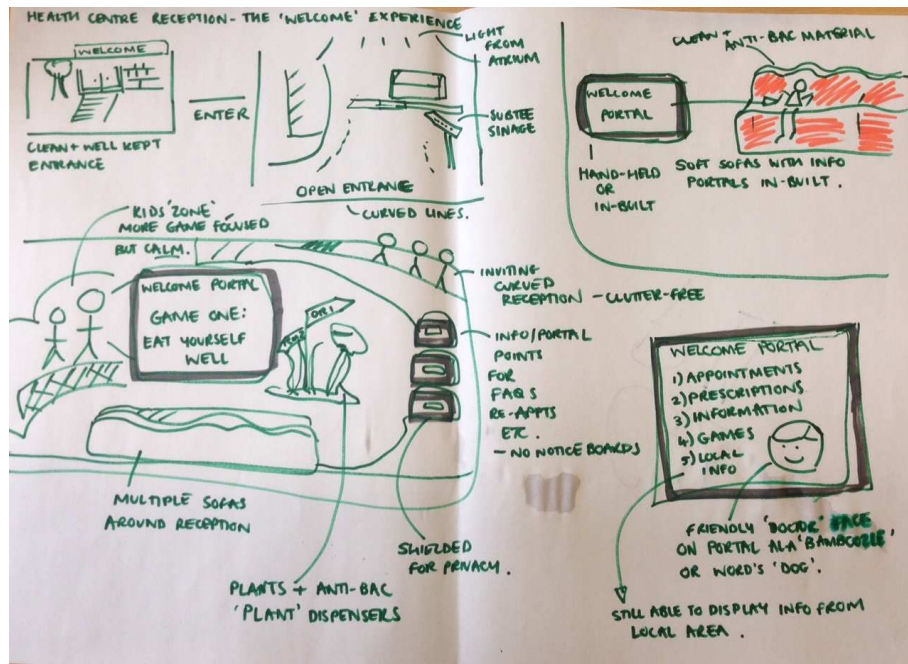 HEALTH CENTRE RECEPTION - THE 'WELCOME' EXPERIENCE
WELCOME
CLEAN + WELL KEPT
ENTRANCE
ENTER
LIGHT
FROM
ATRIUM
SUBTLE
SINAGE
OPEN ENTRANCE
CURVED LINES.
CLEAN +
ANTI-BAC MATERIAL
WELCOME
PORTAL
HAND-HELD
OR
IN-BUILT
SOFT SOFAS WITH INFO
PORTALS IN-BUILT.
KIDS 'ZONE'
MORE GAME FOCUSED
BUT CALM.
WELCOME PORTAL
GAME ONE:
EAT YOURSELF
WELL
RM2
DR1
INVITING
CURVED
RECEPTION - CLUTTER-FREE
INFO/PORTAL
POINTS
FOR
FAQS
RE-APPTS
ETC.
- NO NOTICE BOARDS
MULTIPLE SOFAS
AROUND RECEPTION
PLANTS + ANTI-BAC
'PLANT' DISPENSERS
SHIELDED
FOR PRIVACY.
WELCOME PORTAL
1) APPOINTMENTS
2) PRESCRIPTIONS
3) INFORMATION
4) GAMES
5) LOCAL
INFO
FRIENDLY 'DOCTOR' FACE
ON PORTAL ALA 'BAMBOOZLE'
OR WORD'S 'DOG'.
STILL ABLE TO DISPLAY INFO FROM
LOCAL AREA.